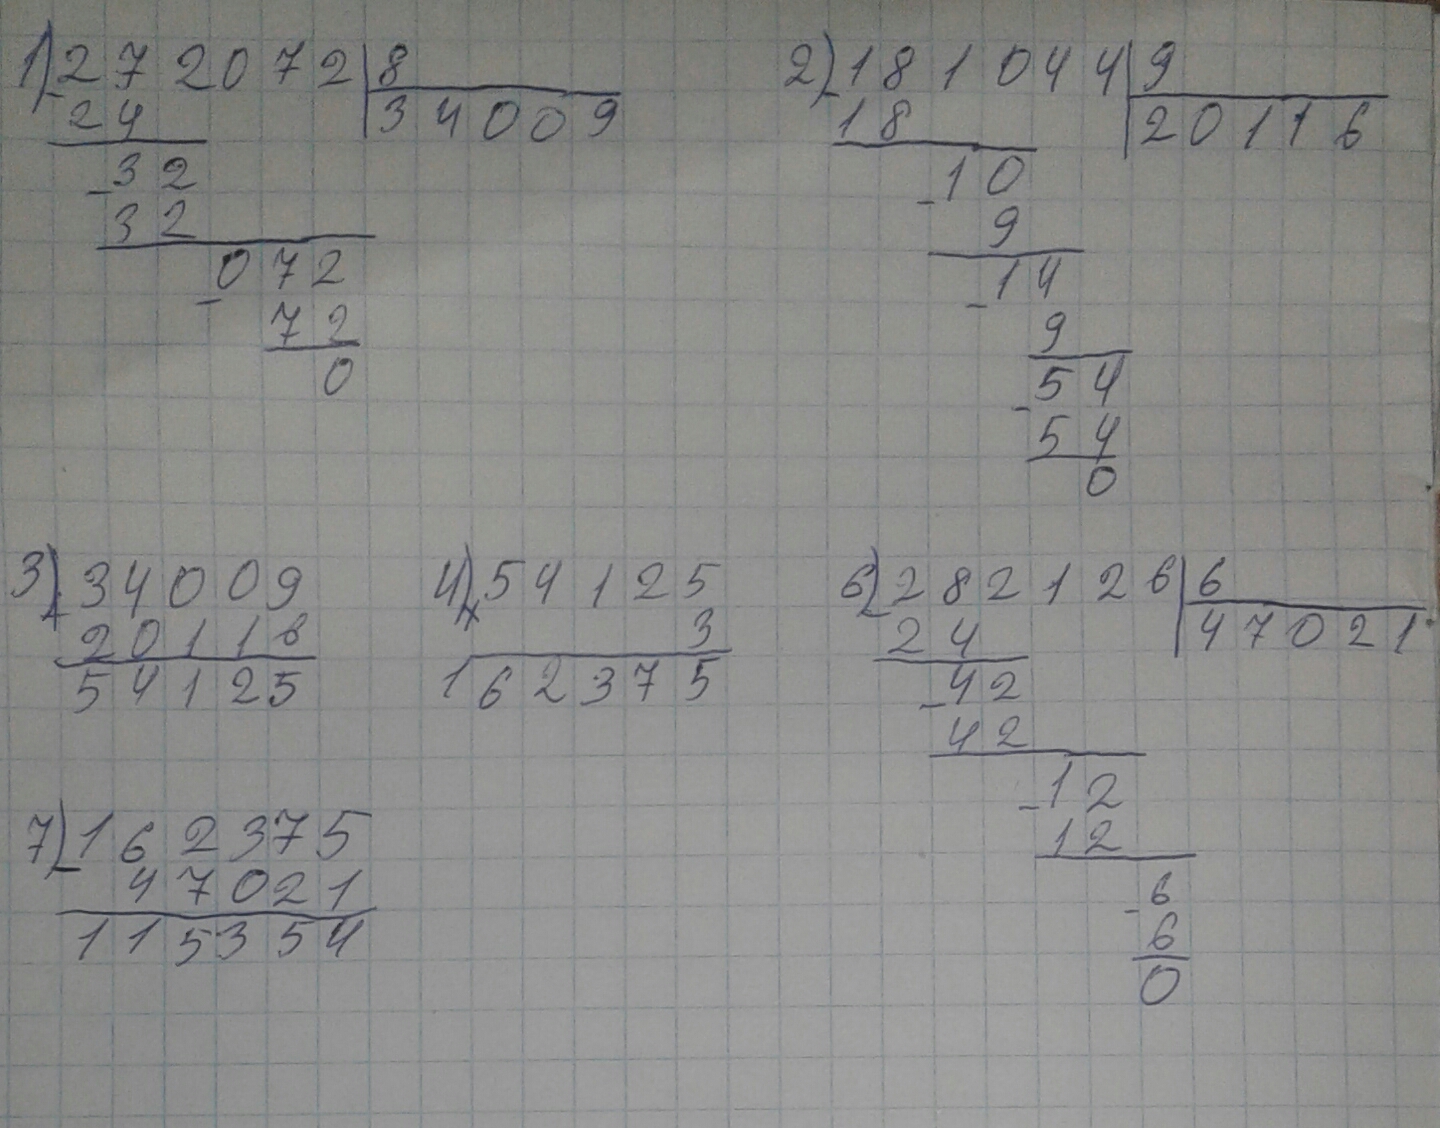 1) 272072 | 8
- 24 | 34009
- 32
32
- 072
72
0
2) 181044 | 9
- 18 | 20116
- 10
9
- 14
9
- 54
54
0
3) 34009
+ 20116
54125
4) 54125
× 3
162375
6) 282126 | 6
- 24 | 47021
- 42
42
- 12
12
- 6
6
0
7) 162375
- 47021
115354